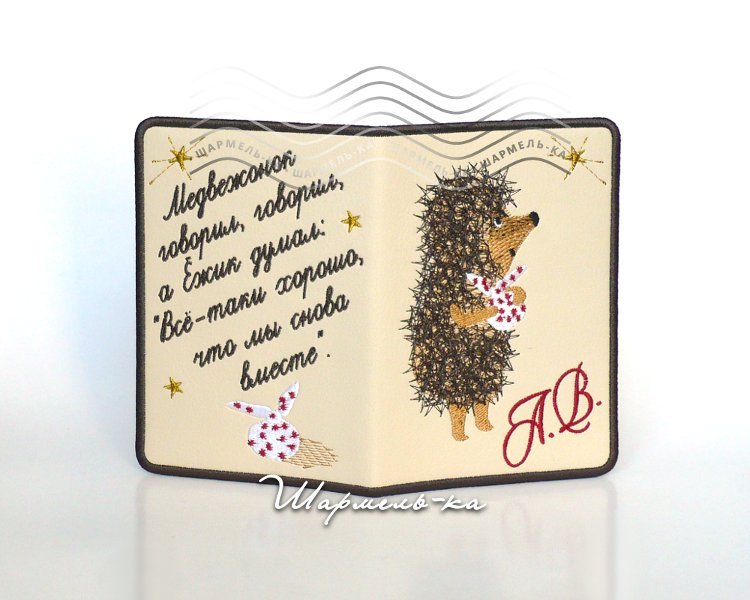 ШАРМЕЛЬ-КА ШАРМЕЛЬ-КА ШАРМЕЛЬ-КА ШАРМЕЛЬ-КА
Медвежонок
говорил, говорил,
а Ёжик думал:
"Всё-таки хорошо,
что мы снова
вместе".
А.В.
Шармель-ка